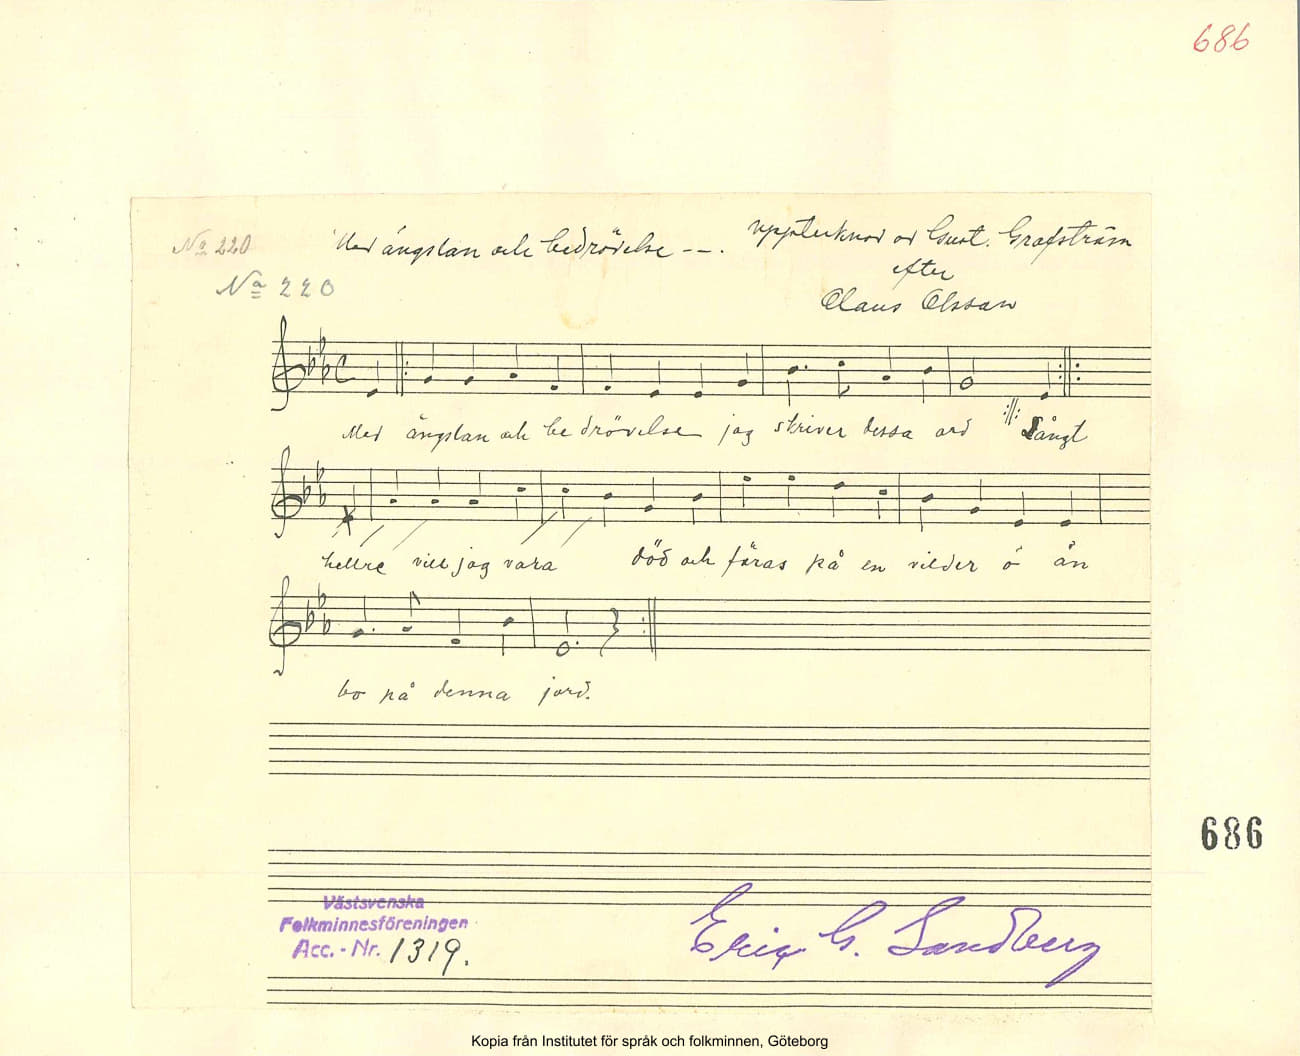 686
No 220
Med ängslan och bedrövelse --.
upptecknad av Gust. Grafström
efter
No 220
Claus Olsson
Med ängslan och bedrövelse jag skriver dessa ord Långt
hellre vill jag vara död och föras på en vilder ö än
bo på denna jord.
686
Västsvenska
Folkminnesföreningen
Acc.-Nr. 1319.
Erix G. Sandberg
Kopia från Institutet för språk och folkminnen, Göteborg